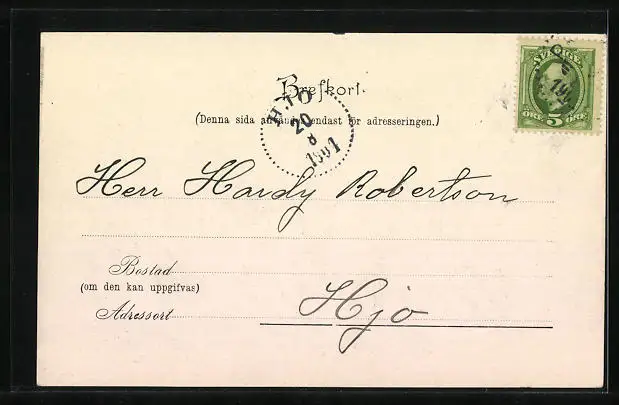 Brefkort.
(Denna sida användes endast för adresseringen.)
SVERIGE
ÖRE 5 ÖRE
HJO
20
8
1901
Herr Hardy Robertson
Bostad
(om den kan uppgifvas)
Hjo
Adressort